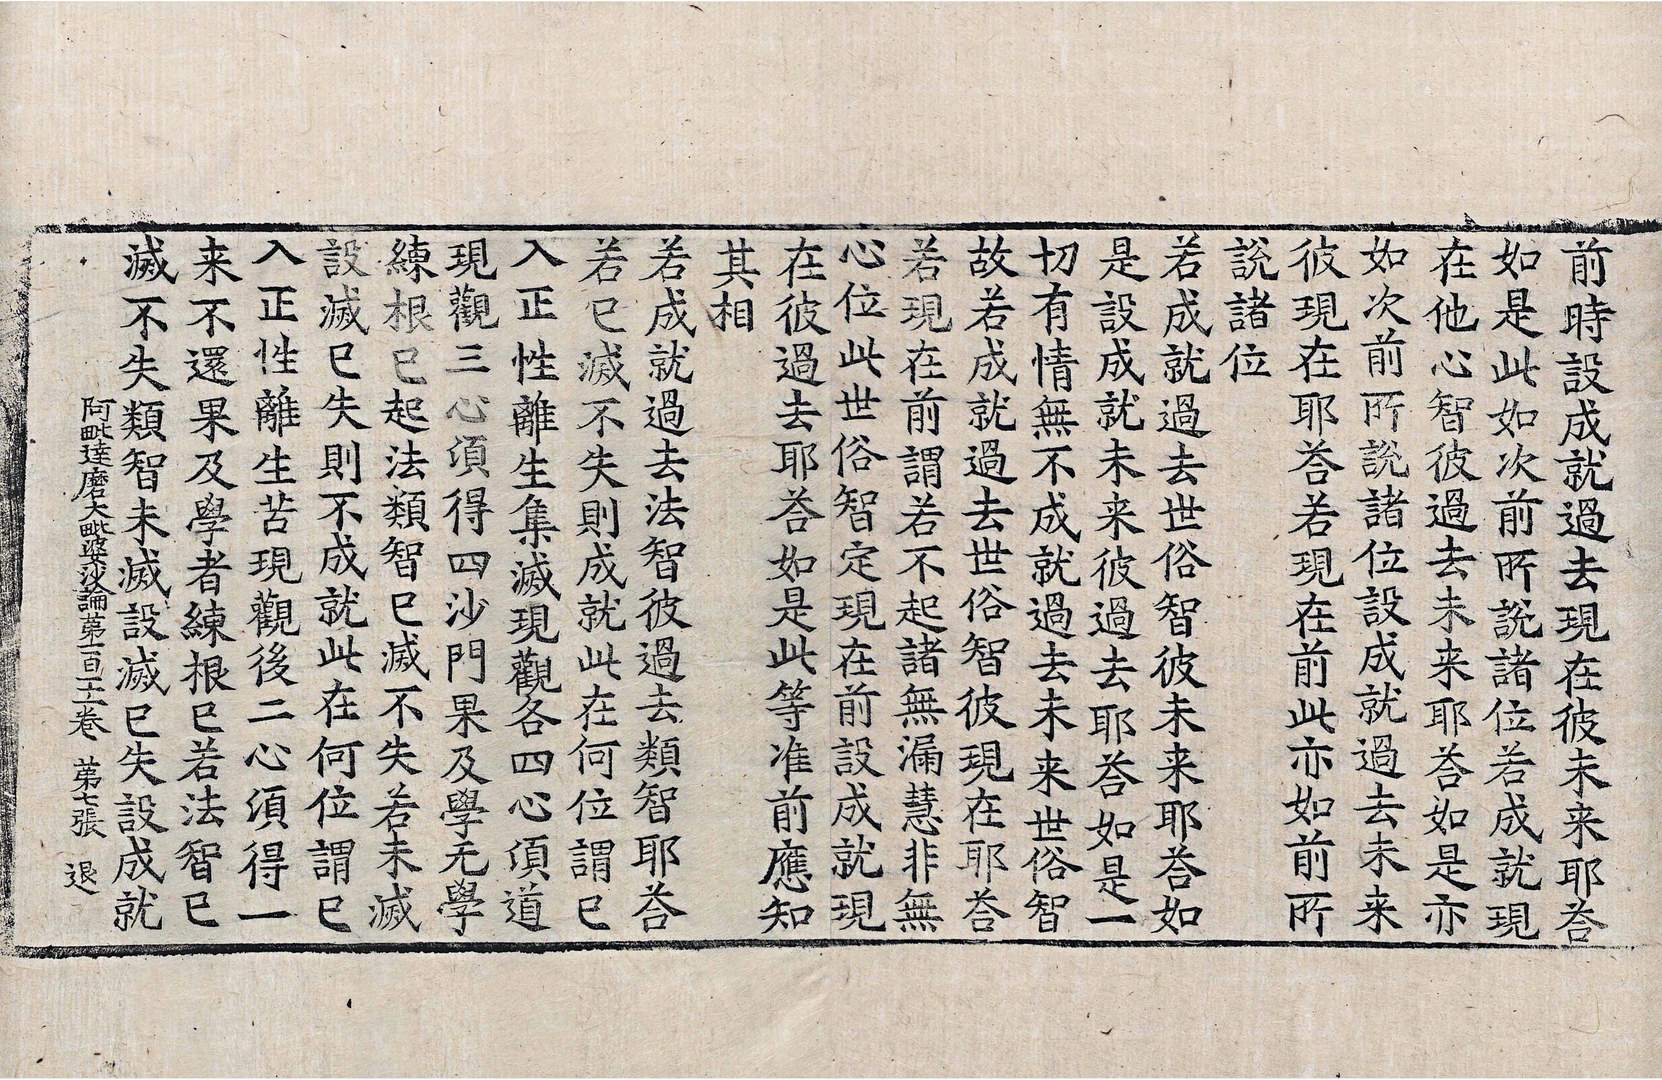 前時設成就過去現在彼未来耶荅
如是此如次前所說諸位若成就現
在他心智彼過去未来耶荅如是亦
如次前所說諸位設成就過去未来
彼現在耶荅若現在前此亦如前所
說諸位
若成就過去世俗智彼未来耶荅如
是設成就未来彼過去耶荅如是一
切有情無不成就過去未来世俗智
故若成就過去世俗智彼現在耶荅
若現在前謂若不起諸無漏慧非無
心位此世俗智定現在前設成就現
在彼過去耶荅如是此等准前應知
其相
若成就過去法智彼過去類智耶荅
若已滅不失則成就此在何位謂已
入正性離生集滅現觀各四心湏道
現觀三心湏得四沙門果及學无學
練根已起法類智已滅不失若未滅
設滅已失則不成就此在何位謂已
入正性離生苦現觀後二心湏得一
来不還果及學者練根已若法智已
滅不失類智未滅設滅已失設成就
阿毗達磨大毗婆沙論苐一百一十一卷 苐七張 退